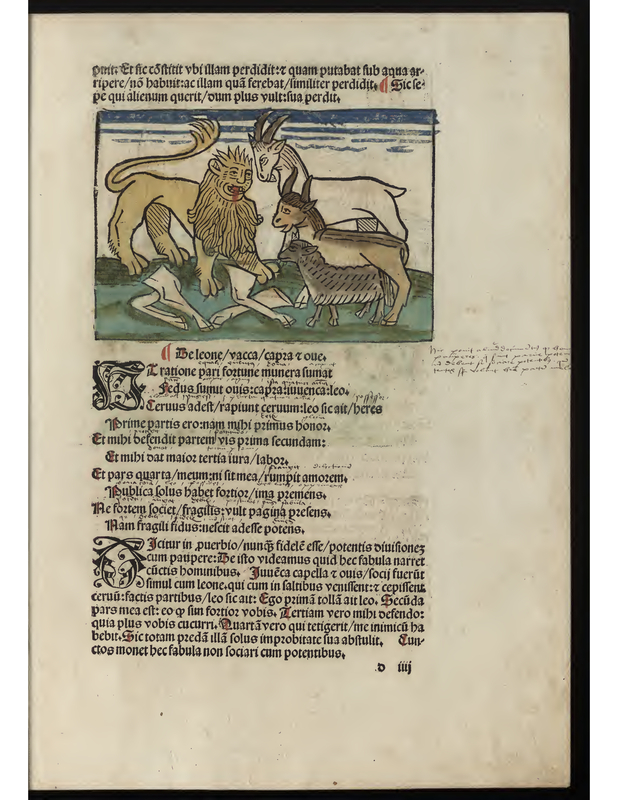 puit. Et sic cōstitit vbi illam perdidit:⁊ quam putabat sub aqua ar-
ripere/nō habuit:ac illam quā ferebat/similiter perdidit. ¶ Sic se-
pe qui alienum querit/dum plus vult:sua perdit.
¶ De leone/vacca/capra ⁊ oue.
Ut ratione pari fortune munera sumat
Fedus sumit ouis:capra:iuuenca:leo.
Ceruus adest/rapiunt ceruum:leo sic ait/heres
Prime partis ero:nam mihi primus honor.
Et mihi defendit partem vis prima secundam:
Et mihi dat maior tertia iura/labor.
Et pars quarta/meum:ni sit mea/rumpit amorem.
Publica solus habet fortior/ima premens.
Ne fortem societ/fragilis:vult pagina presens.
Nam fragili fidus:nescit adesse potens.
Dicitur in ꝓuerbio/nunqꝫ fidelē esse/potentis diuisionez
cum paupere:De isto videamus quid hec fabula narret
cūctis hominibus. Juuēca capella ⁊ ouis/socij fuerūt
simul cum leone.qui cum in saltibus venissent:⁊ cepissent
ceruū:factis partibus/leo sic ait: Ego primā tollā ait leo. Secūda
pars mea est: eo ꝙ sim fortior vobis. Tertiam vero mihi defendo:
quia plus vobis cucurri. Quartā vero qui tetigerit/me inimicū ha
bebit. Sic totam predā illā solus improbitate sua abstulit. Cun-
ctos monet hec fabula non sociari cum potentibus.
d iiij